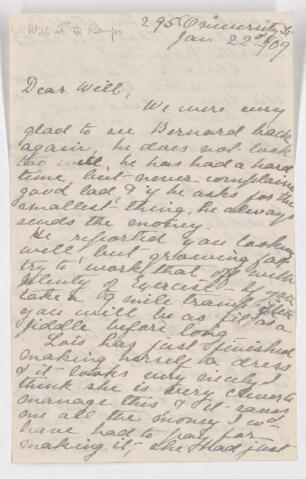 295 University St
Jan 22nd/09
Dear Will,
We were very
glad to see Bernard back
again, he does not look
too well, he has had a hard
time but never complains
good lad & if he asks for the
smallest thing, he always
sends the money.
He reported you looking
well, but growing fat
try to work that off with
plenty of Exercise - if you
take a 19 mile tramp often
you will be as fit as a
fiddle before long
Lois has just finished
making herself a dress
& it looks very nicely I
think she is very clever to
manage this & it saves
me all the money I wd
have had to pay for
making it, she had just